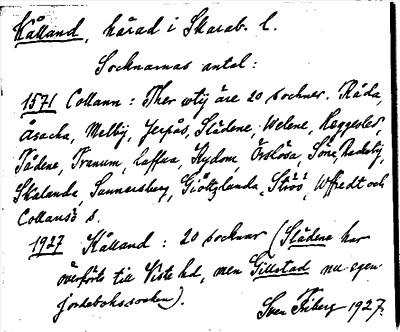 Kålland, härad i Skarab. l.
Socknarnas antal:
1571 Collann: Ther wtij äre 20 sochner. Råda,
Åsacha, Melby, Jerpås, Slädene, Welene, Häggesled,
Tådene, Tranum, Laffua, Rydom, Örslösa, Söne, Hudeby,
Skalunda, Sunnersberg, Giötzlanda, Ströö, Wffredt och
Collansö s.
1927 Kålland: 20 socknar (Slädene har
överförts till Viste hd, men Gillstad nu egen
jordebokssocken).
Sven Friberg 1927.